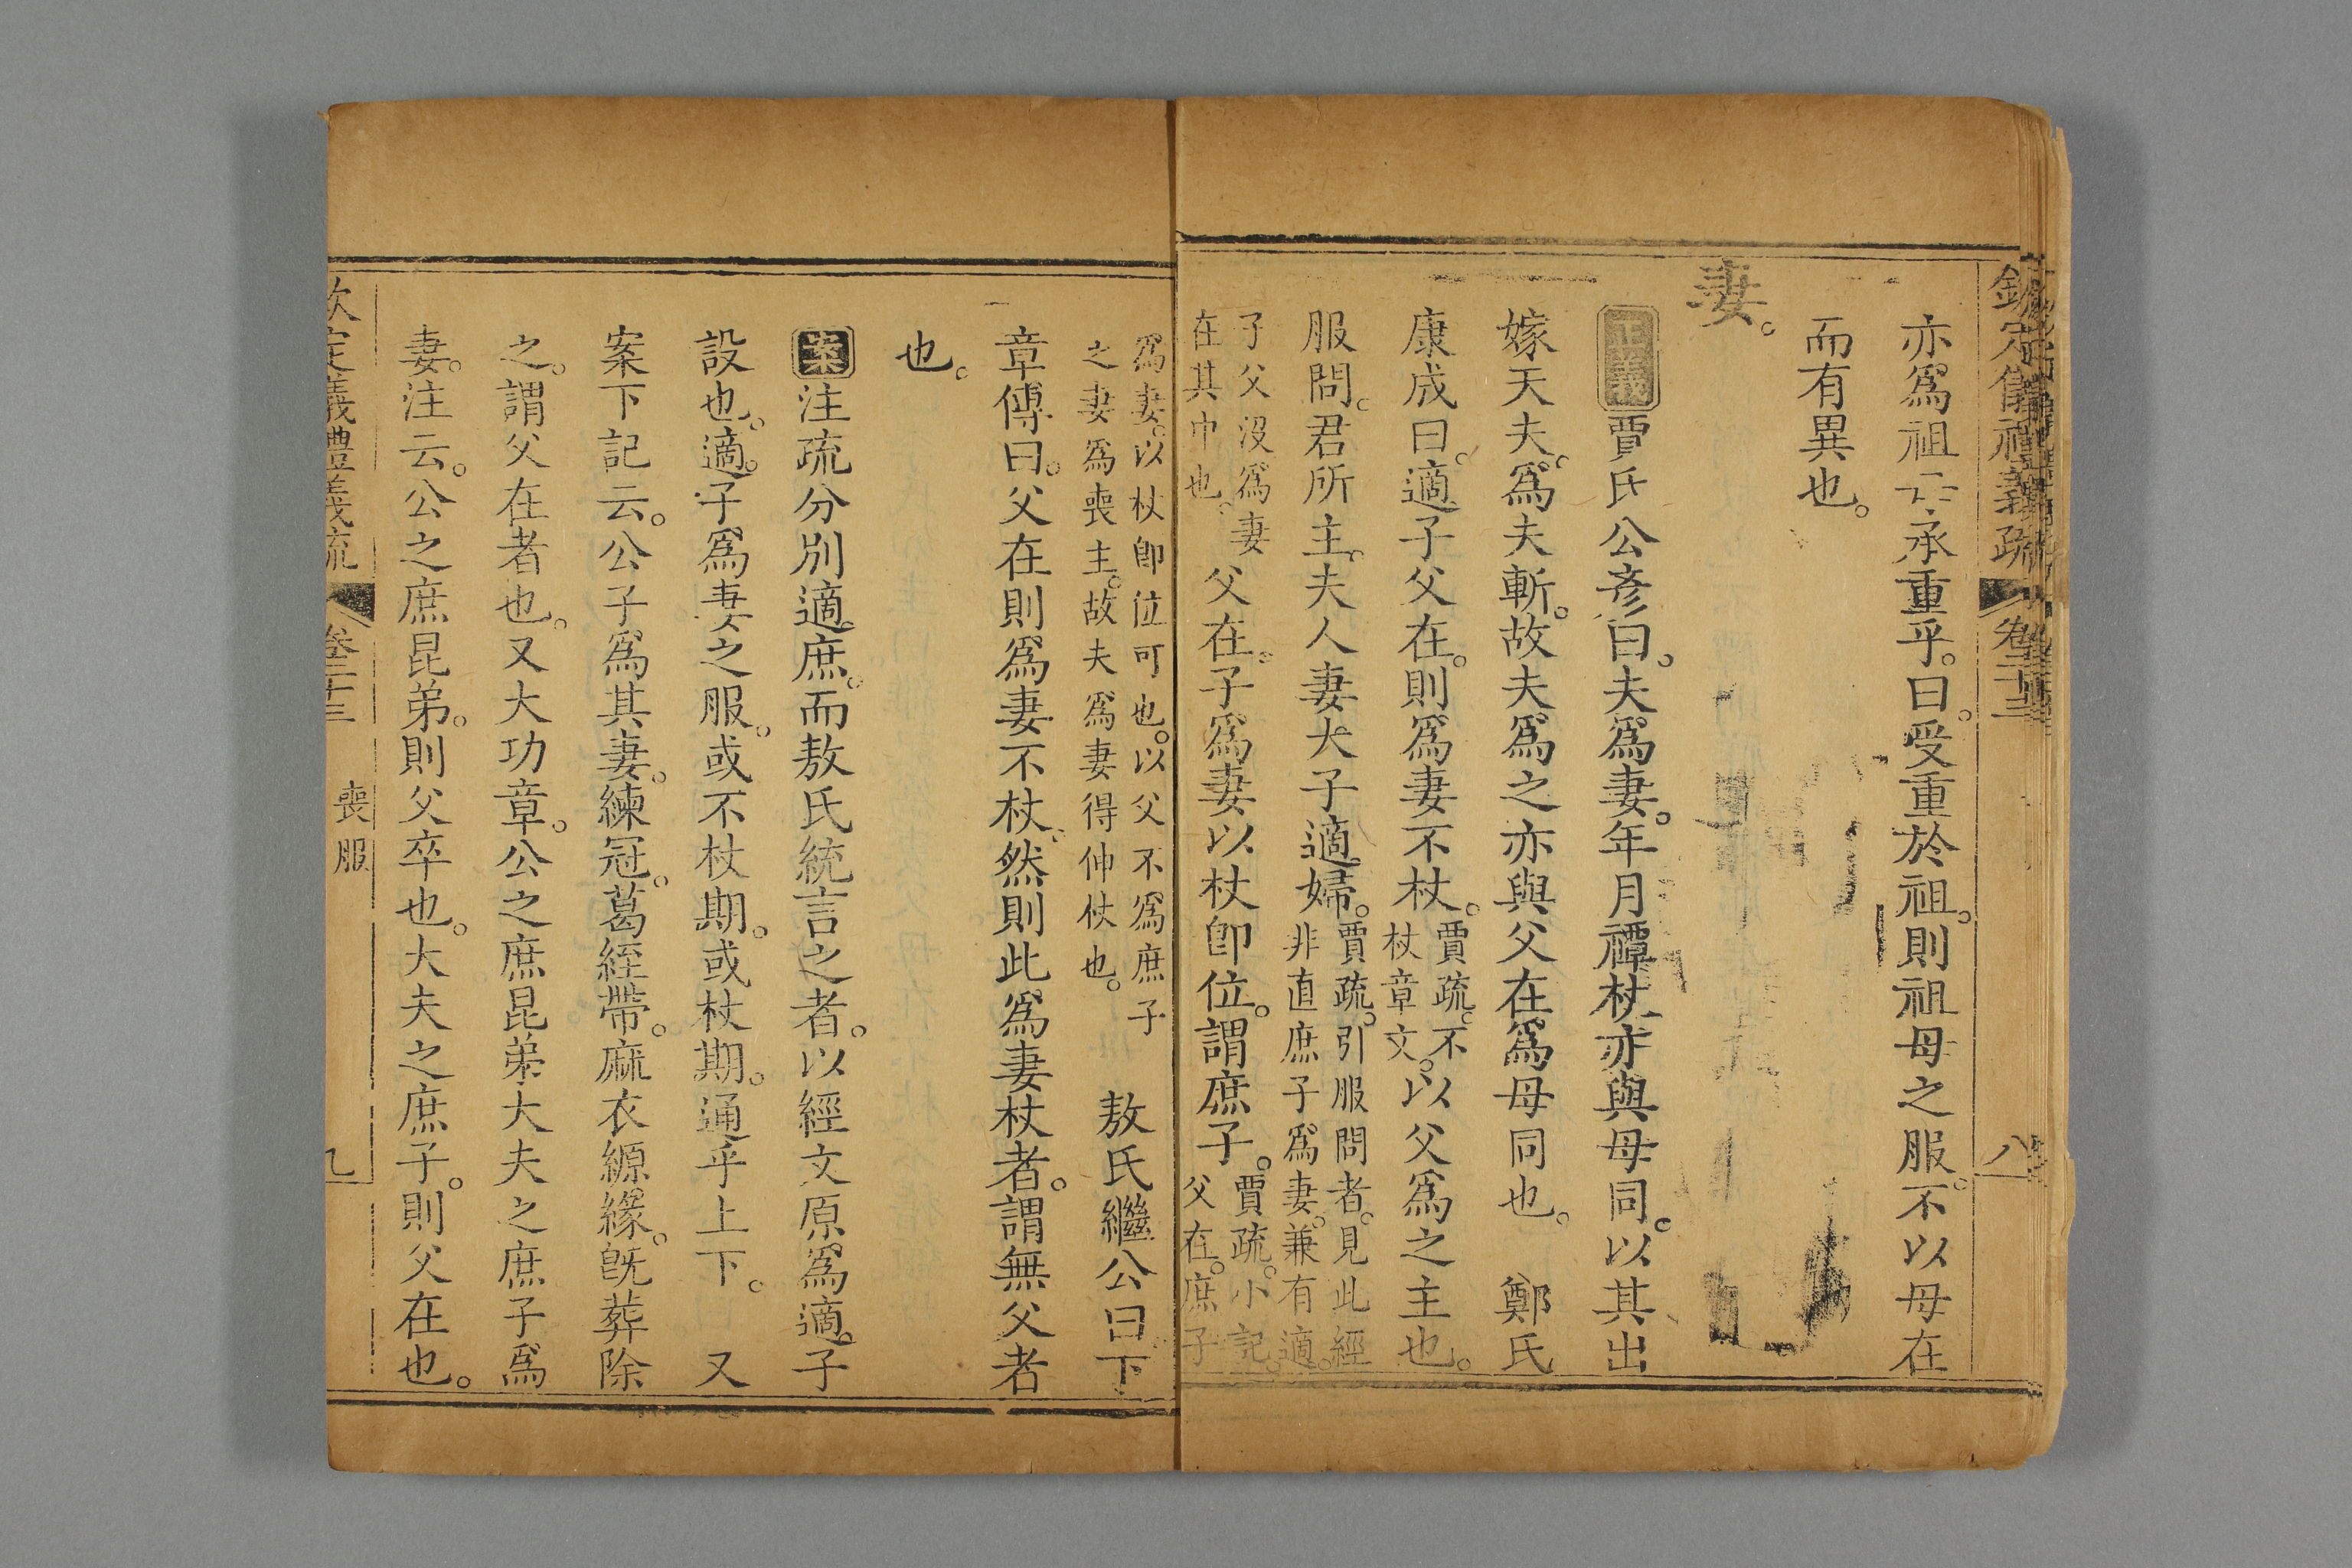 欽定儀禮義疏 卷二十三 八
亦爲祖 承重乎曰受重於祖則祖母之服不以母在
而有異也
妻
正義賈氏公彥曰夫爲妻年月禫杖亦與母同以其出
嫁天夫爲夫斬故夫爲之亦與父在爲母同也 鄭氏
康成曰適子父在則爲妻不杖賈疏不杖章文以父爲之主也
服問君所主夫人妻大子適婦賈疏引服問者見此經非直庶子爲妻兼有適
子父沒爲妻在其中也父在子爲妻以杖卽位謂庶子賈疏小記父在庶子
爲妻以杖卽位可也以父不爲庶子之妻爲喪主故夫爲妻得伸杖也 敖氏繼公曰下
章傳曰父在則爲妻不杖然則此爲妻杖者謂無父者
也
案注疏分別適庶而敖氏統言之者以經文原爲適子
設也適子爲妻之服或不杖期或杖期通乎上下 又
案下記云公子爲其妻練冠葛絰帶麻衣縓緣旣葬除
之謂父在者也又大功章公之庶昆弟大夫之庶子爲
妻注云公之庶昆弟則父卒也大夫之庶子則父在也
欽定儀禮義疏 卷二十三 喪服 九